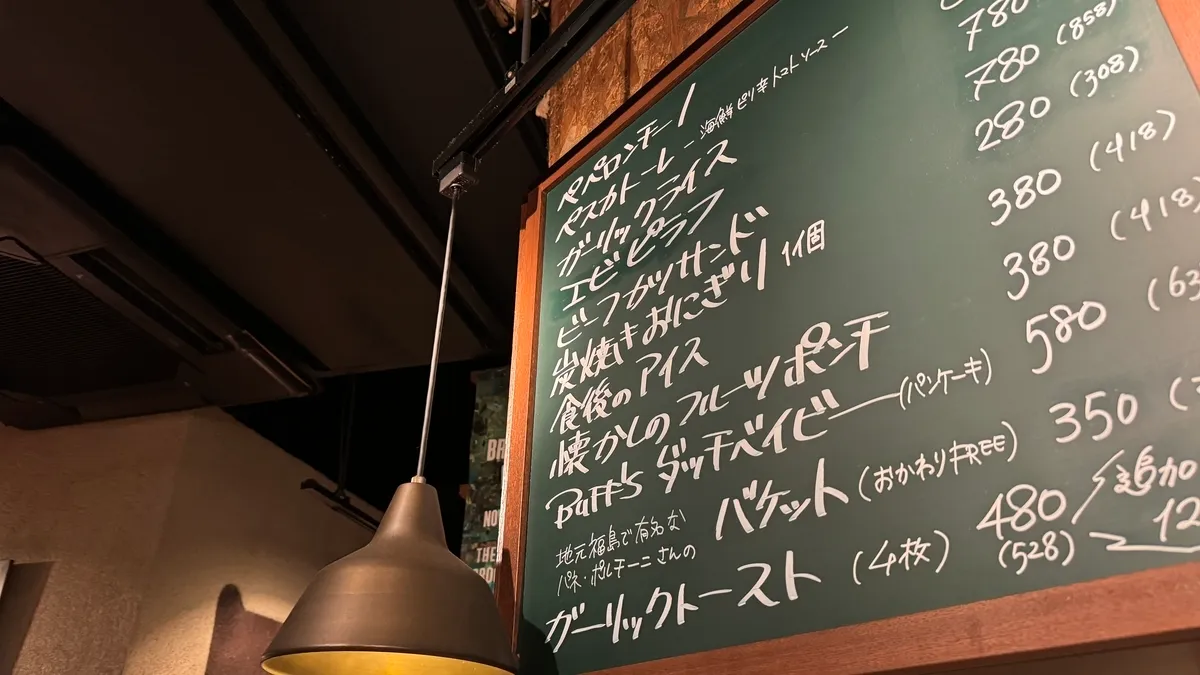 ペペロンチーノ
ペスカトーレ - 海鮮ピリ辛トマトソース -
ガーリックライス
エビピラフ 780
ビーフカツサンド 780 (858)
炭焼きおにぎり 1個 280 (308)
食後のアイス 380 (418)
懐かしのフルーツポンチ 380 (418)
Buff's ダッチベイビー (パンケーキ) 580
地元福島で有名な
パネ・ポルチーニさんの
バケット (おかわりFREE) 350
ガーリックトースト (4枚) 480 (528)
追加
BR
NO
THE